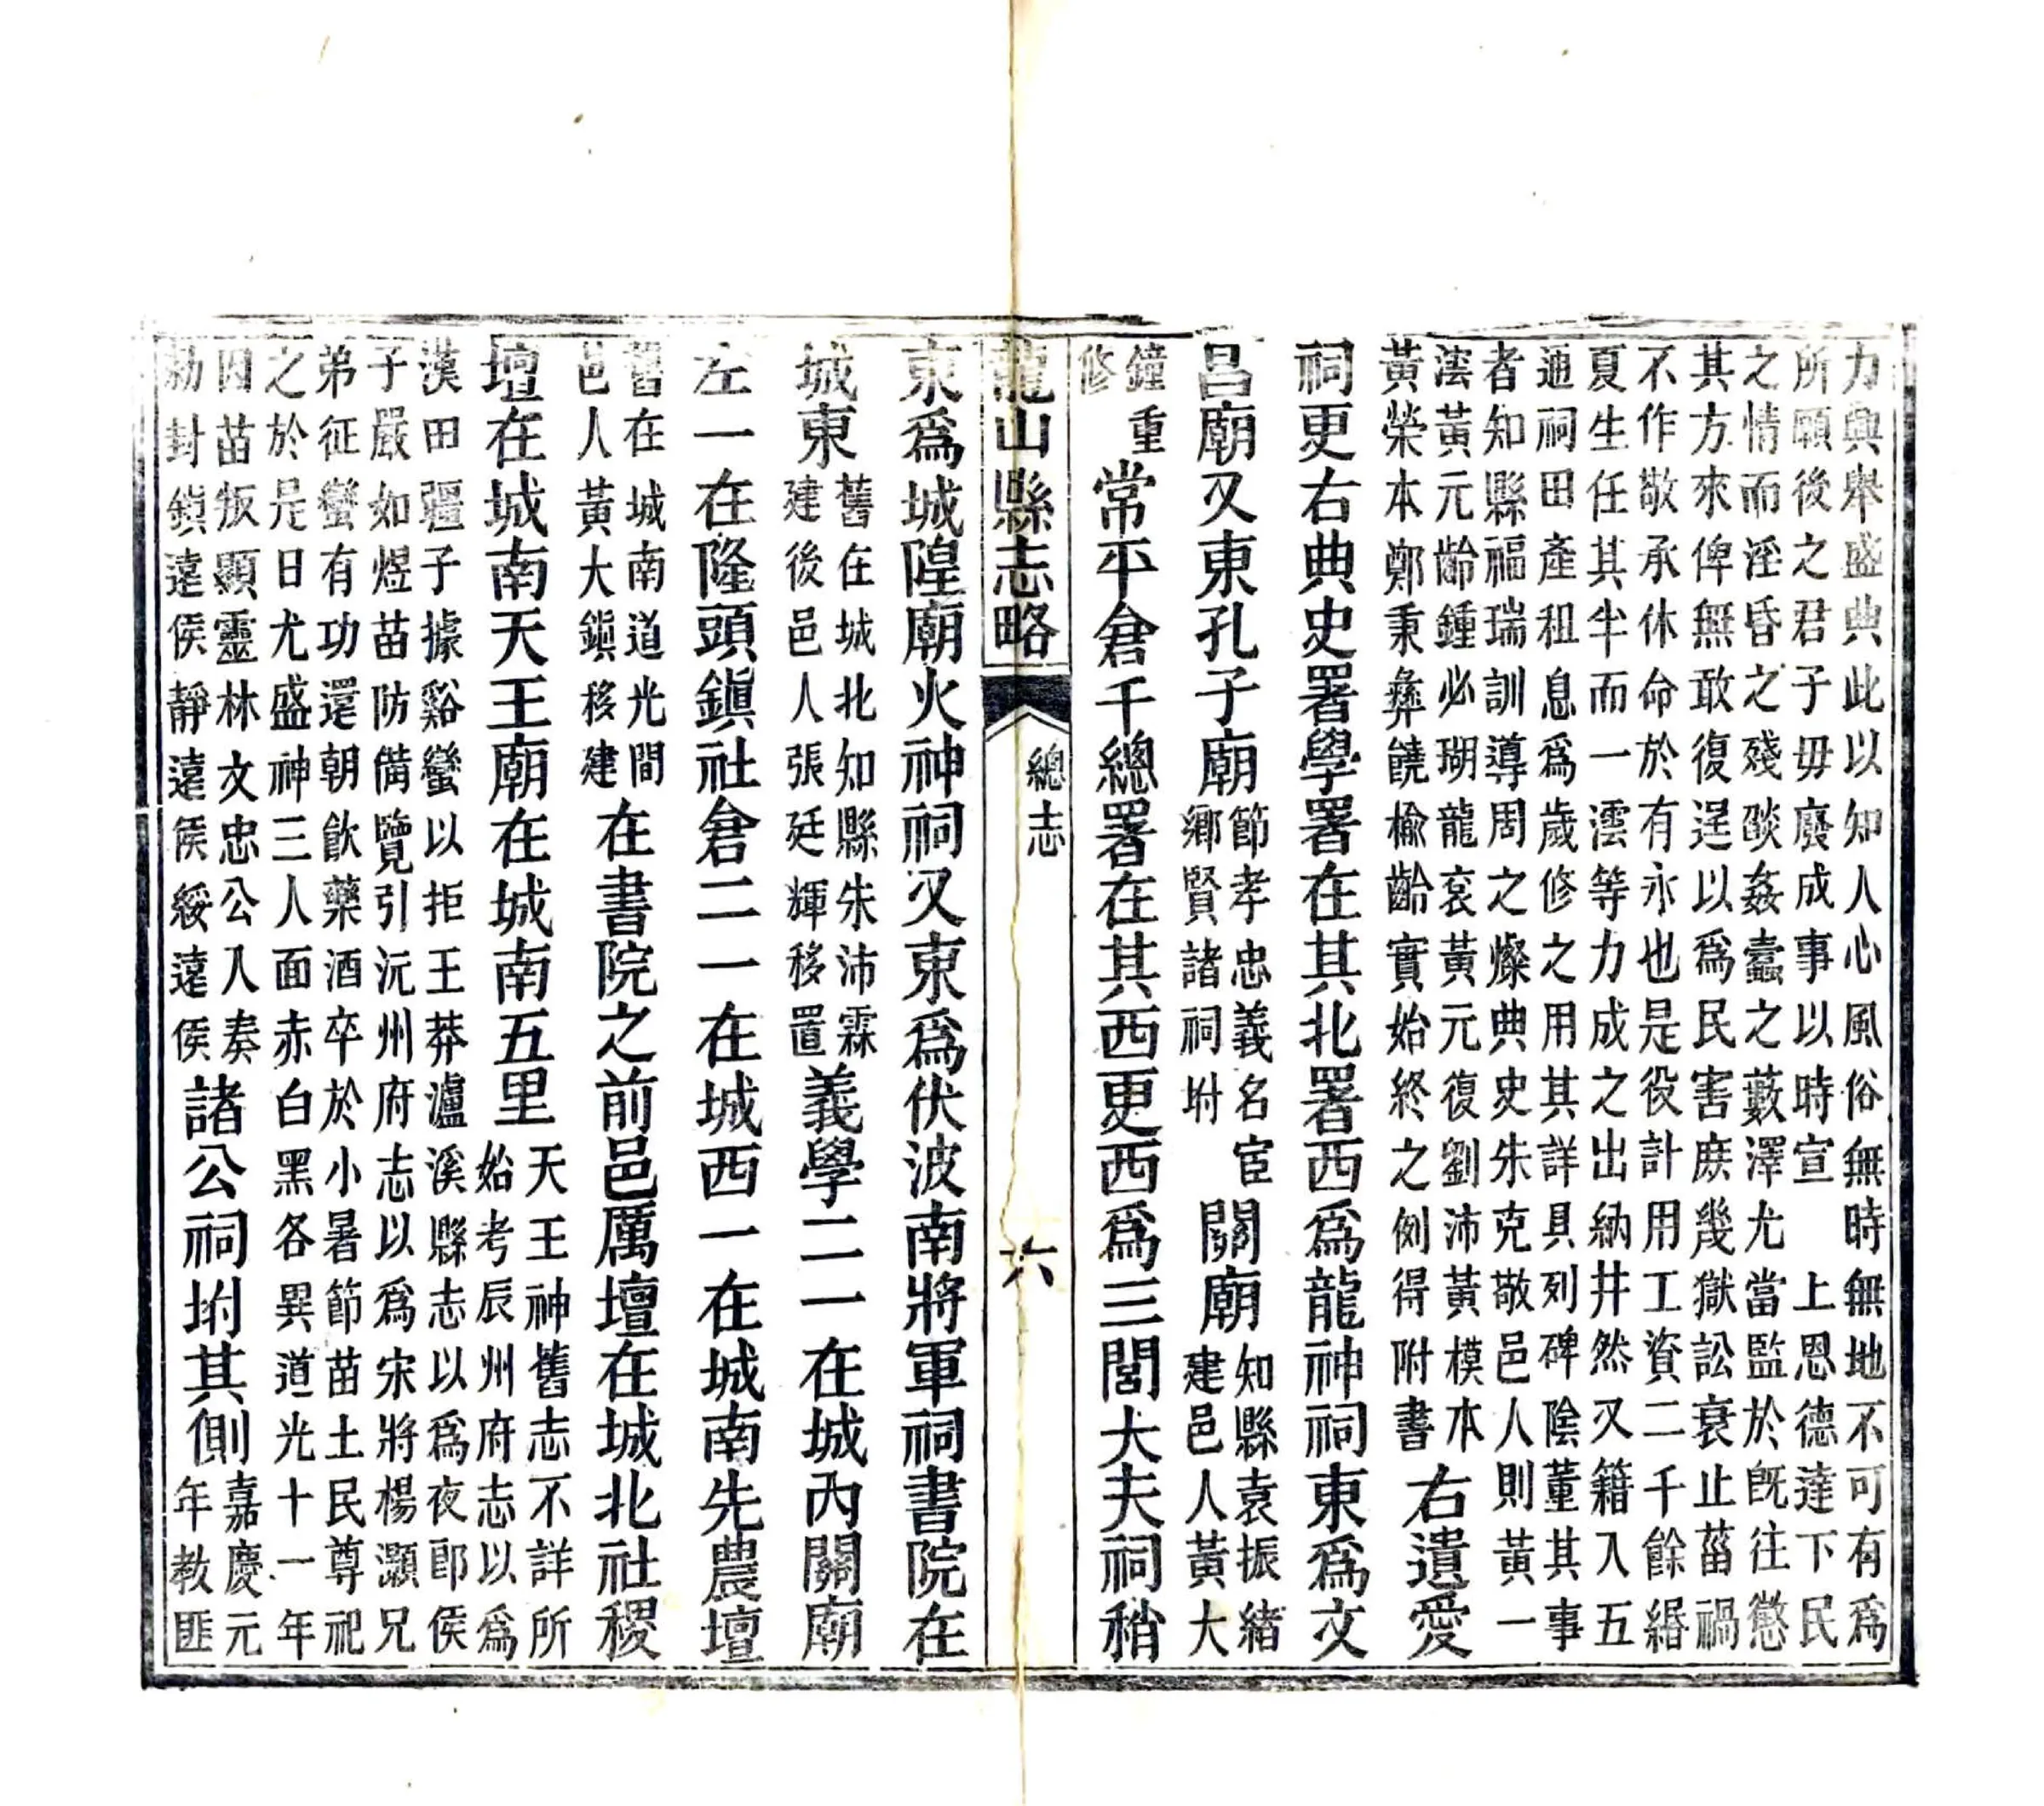 力興舉盛典此以知人心風俗無時無地不可有爲
所願後之君子毋廢成事以時宣　上恩德達下民
之情而淫昏之殘燄姦蠹之藪澤尤當監於旣往懲
其方來俾無敢復逞以爲民害庶幾獄訟衰止菑禍
不作敬承休命於有永也是役計用工資二千餘緡
夏生任其半而一澐等力成之出納井然又籍入五
通祠田產租息爲歲修之用其詳具列碑陰董其事
者知縣福瑞訓導周之燦典史朱克敬邑人則黃一
澐黃元齡鍾必瑚龍哀黃元復劉沛黃模本
黃榮本鄭秉彝饒楡齡實始終之例得附書
右遺愛
祠更右典史署學署在其北署西爲龍神祠東爲文
呂廟又東孔子廟
節孝忠義名宦
鄉賢諸祠坿
關廟
知縣袁振緒
建邑人黃大
鐘重
修
常平倉千總署在其西更西爲三閭大夫祠稍
龍山縣志略
總志
六
東爲城隍廟火神祠又東爲伏波南將軍祠書院在
城東
舊在城北知縣朱沛霖
建後邑人張廷輝移置
義學二一在城內關廟
左一在隆頭鎭社倉二一在城西一在城南先農壇
舊在城南道光間
邑人黃大鎭移建
在書院之前邑厲壇在城北社稷
壇在城南天王廟在城南五里
天王神舊志不詳所
始考辰州府志以爲
漢田疆子據谿蠻以拒王莽瀘溪縣志以爲夜郎侯
子嚴如煜苗防備覽引沅州府志以爲宋將楊灝兄
弟征蠻有功還朝飮藥酒卒於小暑節苗土民尊祀
之於是日尤盛神三人面赤白黑各異道光十一年
因苗叛顯靈林文忠公入奏
勅封鎭遠侯靜遠侯綏遠侯
諸公祠坿其側
嘉慶元
年教匪